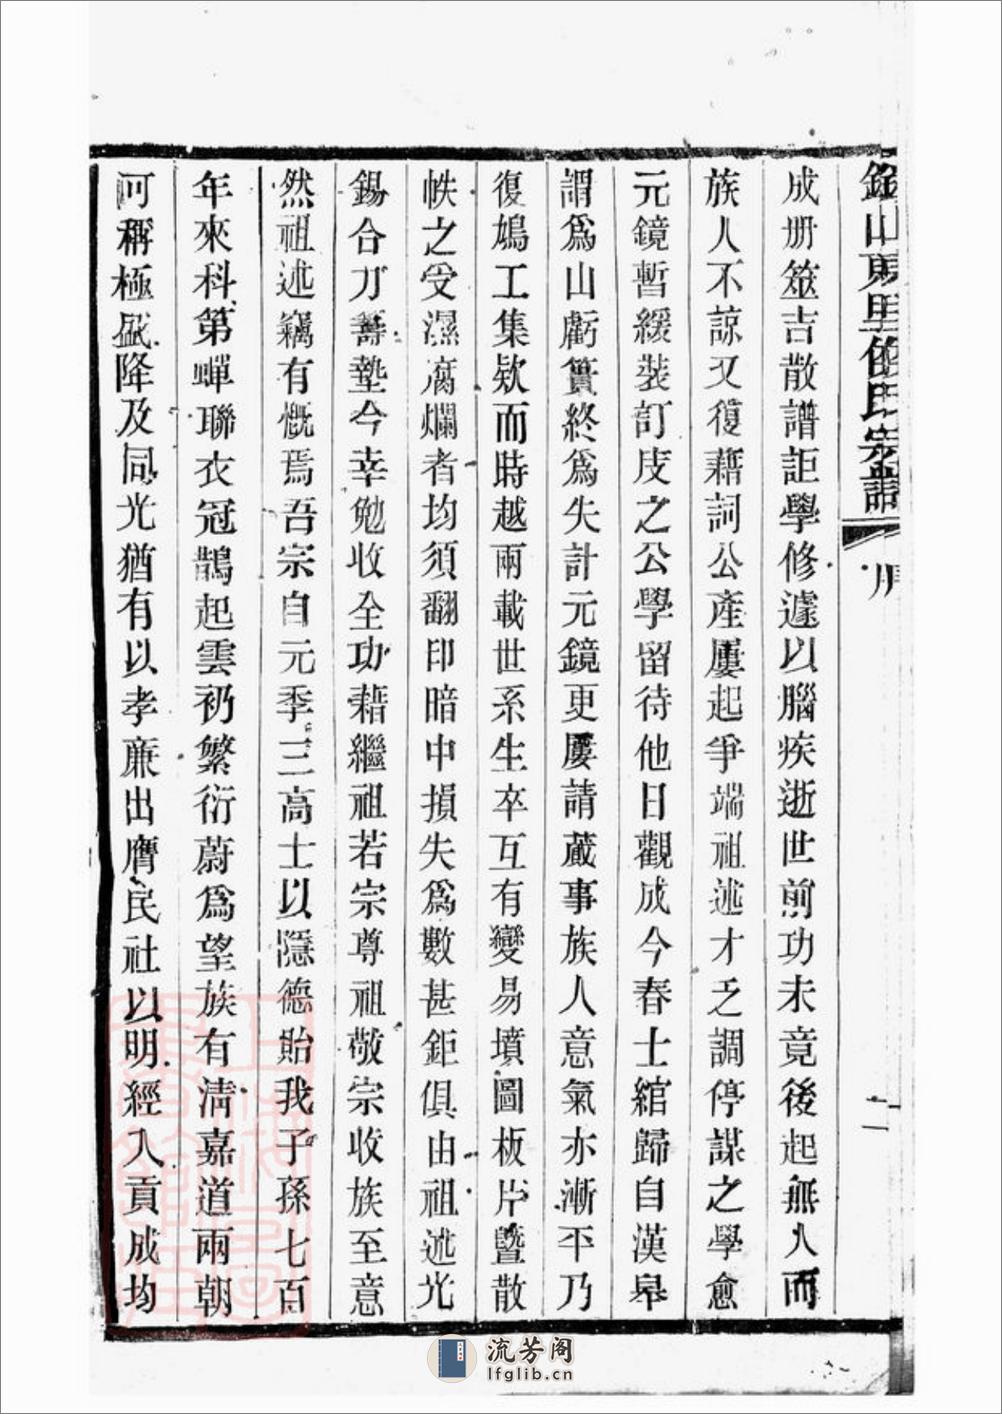 錫山東里侯氏宗譜
成册筮吉散譜詎學修遽以腦疾逝世前功未竟後起無人而
族人不諒又復藉詞公產屢起爭端祖述才乏調停謀之學愈
元鏡暫緩裝訂庋之公學留待他日觀成今春士綰歸自漢皋
謂爲山虧簣終爲失計元鏡更屢請蕆事族人意氣亦漸平乃
復鳩工集欵而時越兩載世系生卒互有變易墳圖板片曁散
帙之受濕腐爛者均須翻印暗中損失爲數甚鉅俱由祖述光
錫合力籌墊今幸勉收全功藉繼祖若宗尊祖敬宗收族至意
然祖述竊有慨焉吾宗自元季三高士以隱德貽我子孫七百
年來科第蟬聯衣冠鵲起雲礽繁衍蔚爲望族有淸嘉道兩朝
可稱極盛降及同光猶有以孝廉出膺民社以明經入貢成均
流芳阁
lfglib.cn